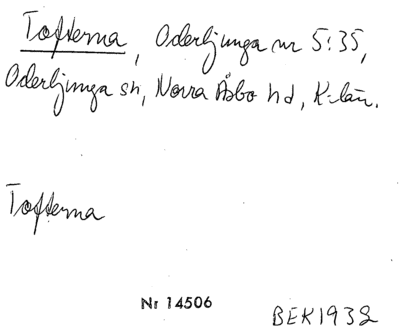 Tofterna, Oderljunga nr 5:35,
Oderljunga sn, Norra Åsbo hd, K-län.
Tofterna
Nr 14506
BEK1932